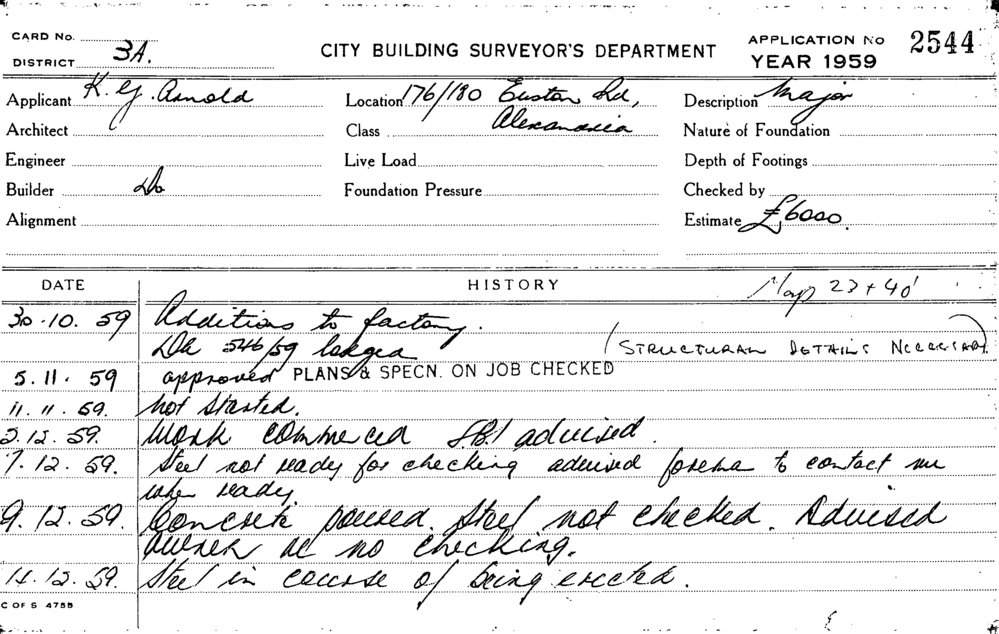 CARD No.
DISTRICT 3A.
CITY BUILDING SURVEYOR'S DEPARTMENT
APPLICATION No 2544
YEAR 1959
Applicant K. G. Arnold
Location 176/180 Euston Rd,
Description Major
Architect
Class Alexandria
Nature of Foundation
Engineer
Live Load
Depth of Footings
Builder Do
Foundation Pressure
Checked by
Alignment
Estimate £6000.
DATE
HISTORY
Map 23 + 40
30.10.59 Additions to factory.
DA 546/59 lodged
(STRUCTURAL DETAILS NECESSARY)
5.11.59 approved PLANS & SPECN. ON JOB CHECKED
11.11.59. Not started.
2.12.59. Work commerced advised.
7.12.59. Steel not ready for checking advised forema to contact me
when ready.
9.12.59. Concrete poured. Steel not checked. Advised
owner re no checking.
14.12.59. Steel in course of being erected.
C OF S 475B